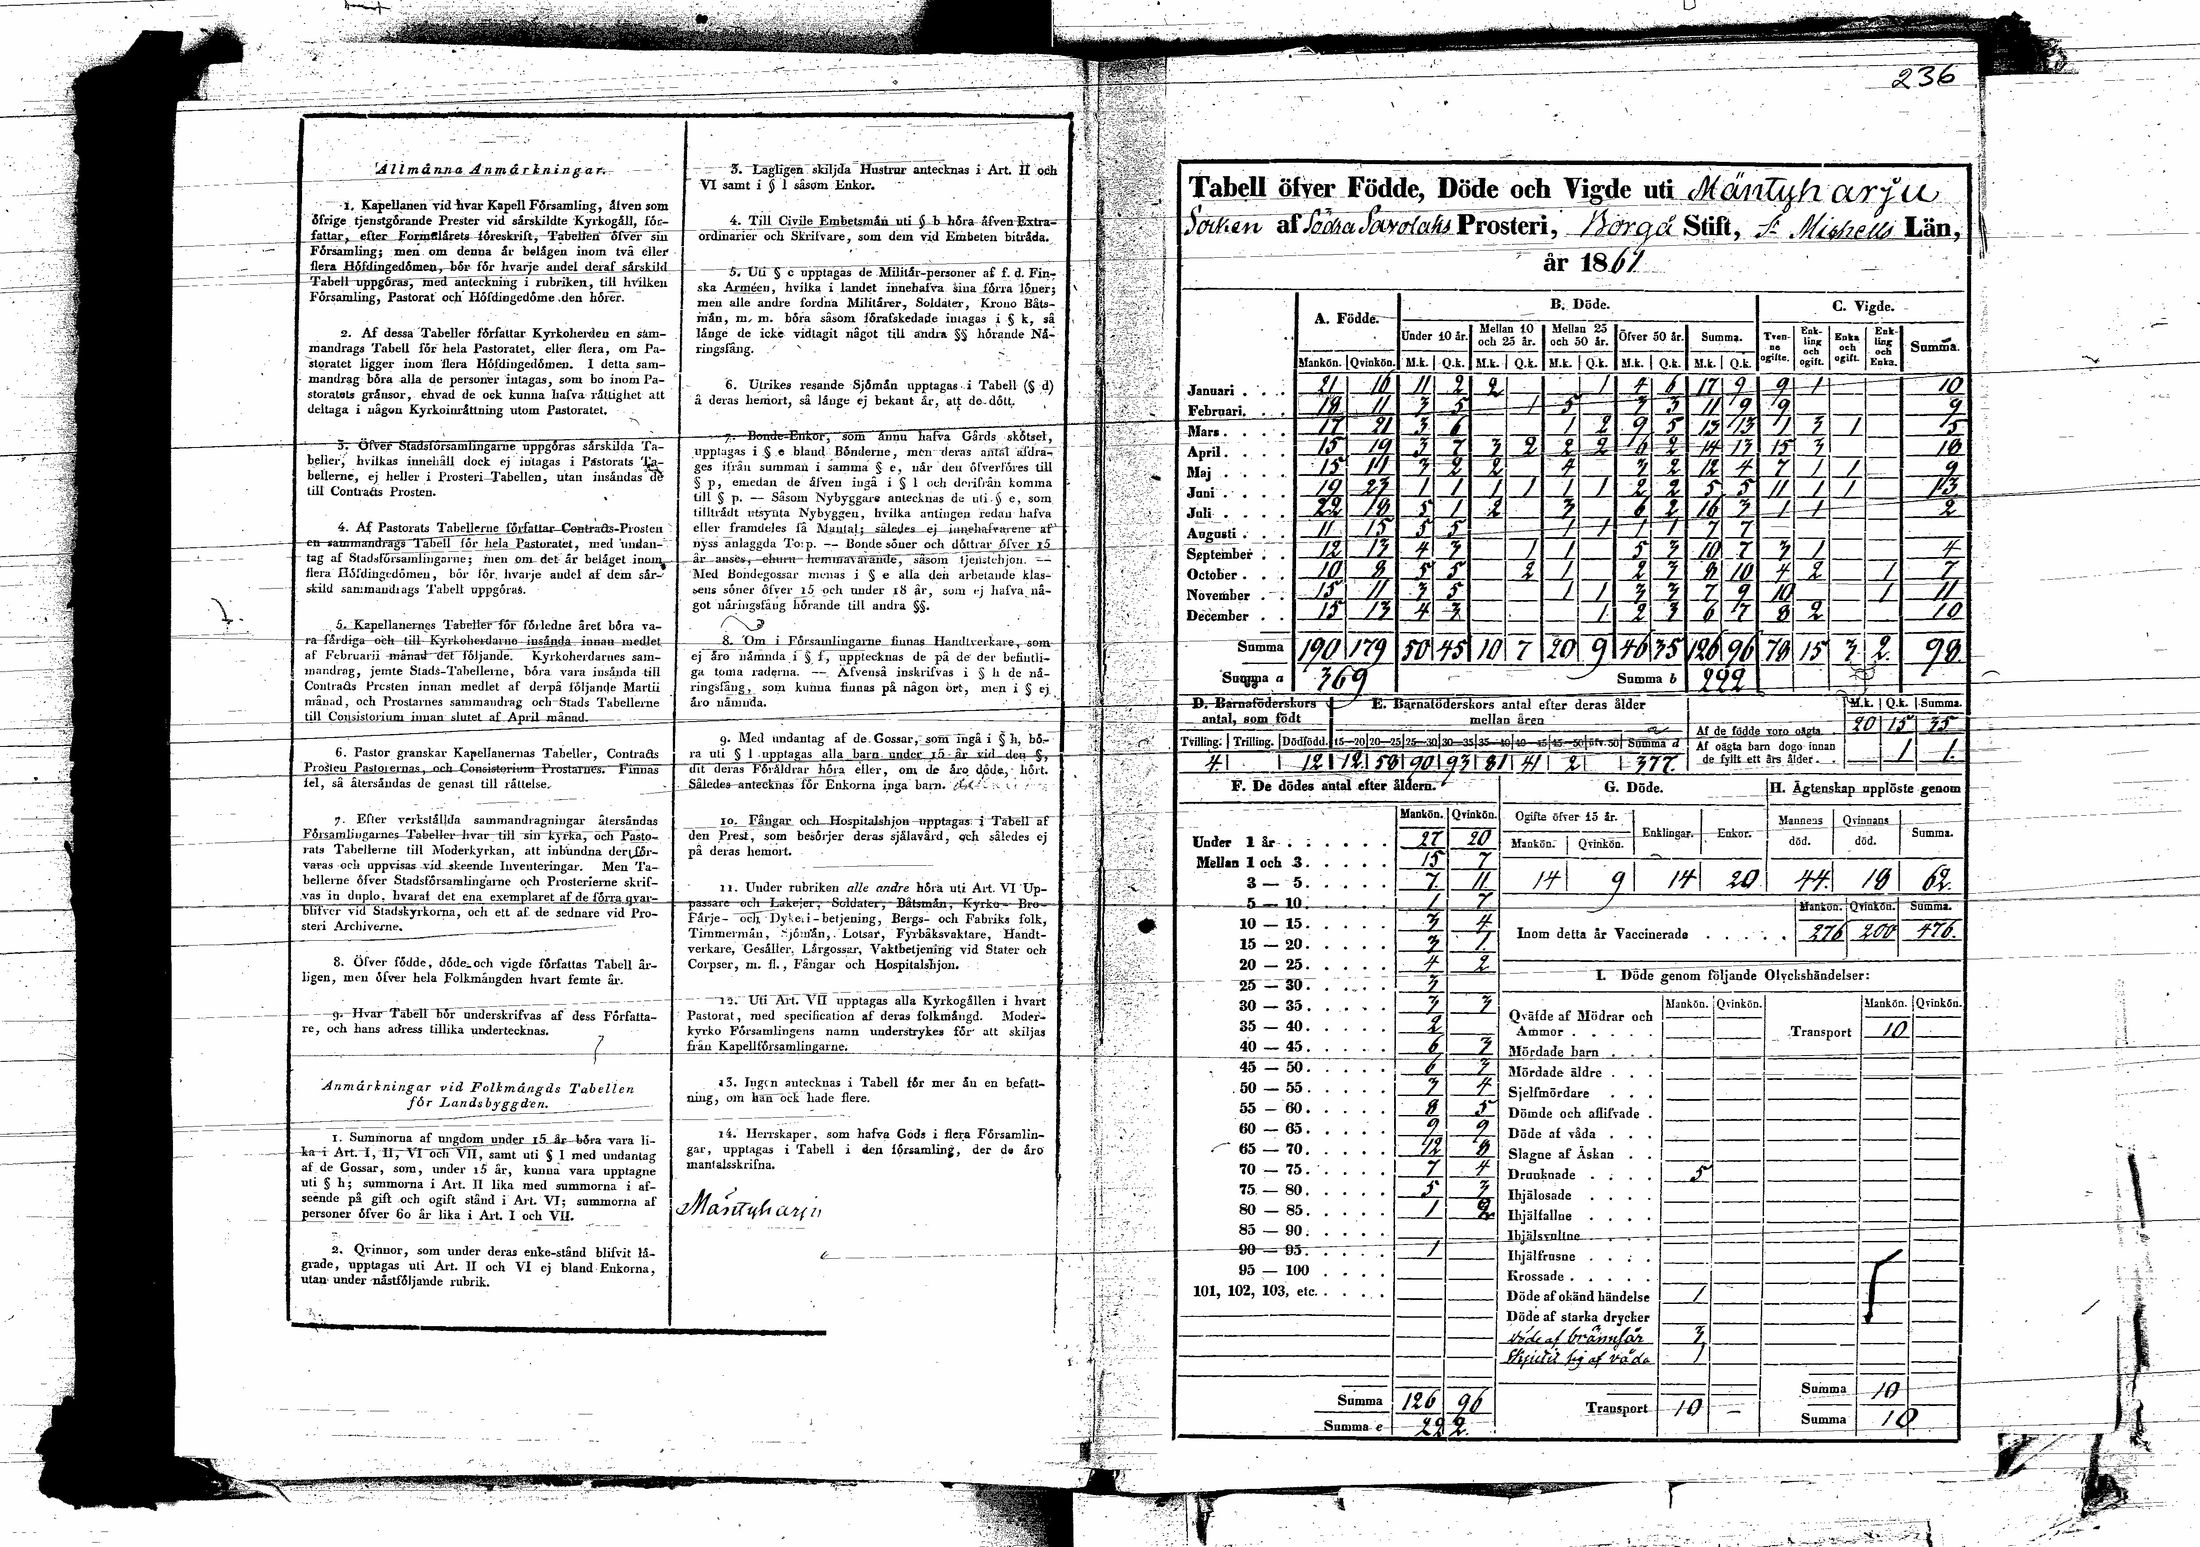 236
Allmänna Anmärkningar.
1. Kapellanen vid hvar Kapell Församling, äfven som
öfrige tjenstgörande Prester vid särskildte Kyrkogäll, för-
fattar, efter Formulärets föreskrift, Tabellen öfver sin
Församling; men om denna är belägen inom två eller
flera Höfdingedömen, bör för hvarje andel deraf särskild
Tabell uppgöras, med anteckning i rubriken, till hvilken
Församling, Pastorat och Höfdingedöme den hörer.
2. Af dessa Tabeller författar Kyrkoherden en sam-
mandrags Tabell för hela Pastoratet, eller flera, om Pa-
storatet ligger inom flera Höfdingedömen. I detta sam-
mandrag böra alla de personer intagas, som bo inom Pa-
storatets gränsor, ehvad de ock kunna hafva rättighet att
deltaga i någon Kyrkoinrättning utom Pastoratet.
3. Öfver Stadsförsamlingarne uppgöras särskilda Ta-
beller, hvilkas innehåll dock ej intagas i Pastorats Ta-
bellerne, ej heller i Prosteri-Tabellen, utan insändas de
till Contracts Prosten.
4. Af Pastorats Tabellerne författar Contracts-Prosten
en sammandrags Tabell för hela Pastoratet, med undan-
tag af Stadsförsamlingarne; men om det är beläget inom
flera Höfdingedömen, bör för hvarje andel af dem sär-
skild sammandrags Tabell uppgöras.
5. Kapellanernes Tabeller för förledne året böra va-
ra färdiga och till Kyrkoherdarne insända innan medlet
af Februarii månad det följande. Kyrkoherdarnes sam-
mandrag, jemte Stads-Tabellerne, böra vara insända till
Contracts Prosten innan medlet af derpå följande Martii
månad, och Prostarnes sammandrag och Stads Tabellerne
till Consistorium innan slutet af April månad.
6. Pastor granskar Kapellanernas Tabeller, Contracts
Prosten Pastorernas, och Consistorium Prostarnes. Finnas
fel, så återsändas de genast till rättelse.
7. Efter verkställda sammandragningar återsändas
Församlingarnes Tabeller hvar till sin kyrka, och Pasto-
rats Tabellerne till Moderkyrkan, att inbundna der för-
varas och uppvisas vid skeende Inventeringar. Men Ta-
bellerne öfver Stadsförsamlingarne och Prosterierne skrif-
vas in duplo, hvaraf det ena exemplaret af de förra qvar-
blifver vid Stadskyrkorna, och ett af de sednare vid Pro-
steri Archiverne.
8. Öfver födde, döde och vigde författas Tabell år-
ligen, men öfver hela Folkmängden hvart femte år.
9. Hvar Tabell bör underskrifvas af dess Författa-
re, och hans adress tillika undertecknas.
Anmärkningar vid Folkmängds Tabellen
för Landsbyggden.
1. Summorna af ungdom under 15 år böra vara li-
ka i Art. I, II, VI och VII, samt uti § l med undantag
af de Gossar, som, under 15 år, kunna vara upptagne
uti § h; summorna i Art. II lika med summorna i af-
seende på gift och ogift stånd i Art. VI; summorna af
personer öfver 60 år lika i Art. I och VII.
2. Qvinnor, som under deras enke-stånd blifvit lä-
grade, upptagas uti Art. II och VI ej bland Enkorna,
utan under nästföljande rubrik.
3. Lagligen skiljda Hustrur antecknas i Art. II och
VI samt i § l såsom Enkor.
4. Till Civile Embetsmän uti § b höra äfven Extra-
ordinarier och Skrifvare, som dem vid Embeten biträda.
5. Uti § c upptagas de Militär-personer af f. d. Fin-
ska Arméen, hvilka i landet innehafva sina förra löner;
men alle andre fordna Militärer, Soldater, Krono Båts-
män, m. m. böra såsom förafskedade intagas i § k, så
länge de icke vidtagit något till andra §§ hörande Nä-
ringsfång.
6. Utrikes resande Sjömän upptagas i Tabell (§ d)
å deras hemort, så länge ej bekant är, att de dött.
7. Bonde-Enkor, som ännu hafva Gårds skötsel,
upptagas i § e bland Bönderne, men deras antal afdra-
ges ifrån summan i samma § e, når den öfverföres till
§ p, emedan de äfven ingå i § l och derifrån komma
till § p. — Såsom Nybyggare antecknas de uti § e, som
tillträdt utsynta Nybyggen, hvilka antingen redan hafva
eller framdeles få Mantal; således ej innehafvarene af
nyss anlaggda Torp. — Bonde söner och döttrar öfver 15
år anses, ehuru hemmavarande, såsom tjenstehjon. —
Med Bondegossar menas i § e alla den arbetande klas-
sens söner öfver 15 och under 18 år, som ej hafva nå-
got näringsfång hörande till andra §§.
8. Om i Församlingarne finnas Handtverkare, som
ej äro nämnda i § f, upptecknas de på de der befintli-
ga toma raderna. — Äfvenså inskrifvas i § h de nä-
ringsfång, som kunna finnas på någon ort, men i § ej
äro nämnda.
9. Med undantag af de Gossar, som ingå i § h, bö-
ra uti § l upptagas alla barn under 15 år vid den §,
dit deras Föräldrar höra eller, om de äro döde, hört.
Således antecknas för Enkorna inga barn.
10. Fångar och Hospitalshjon upptagas i Tabell af
den Prest, som besörjer deras själavård, och således ej
på deras hemort.
11. Under rubriken alle andre höra uti Art. VI Up-
passare och Lakejer, Soldater, Båtsmän, Kyrko- Bro-
Färje- och Dykeri-betjening, Bergs- och Fabriks folk,
Timmermän, Sjömän, Lotsar, Fyrbåksvaktare, Handt-
verkare, Gesäller, Lärgossar, Vaktbetjening vid Stater och
Corpser, m. fl., Fångar och Hospitalshjon.
12. Uti Art. VII upptagas alla Kyrkogällen i hvart
Pastorat, med specification af deras folkmängd. Moder-
kyrko Församlingens namn understrykes för att skiljas
från Kapellförsamlingarne.
13. Ingen antecknas i Tabell för mer än en befatt-
ning, om han ock hade flere.
14. Herrskaper, som hafva Gods i flera Församlin-
gar, upptagas i Tabell i den församling, der de äro
mantalsskrifna.
Mäntyharju
Tabell öfver Födde, Döde och Vigde uti Mäntyharju
Socken af Södra Savolaks Prosteri, Borgå Stift, St Michells Län,
år 1861
A. Födde. B. Döde. C. Vigde.
Under 10 år. Mellan 10 och 25 år. Mellan 25 och 50 år. Öfver 50 år. Summa. Tvenne ogifte. Enkling och ogift. Enka och ogift. Enkling och Enka. Summa.
Mankön. Qvinkön. M.k. Q.k. M.k. Q.k. M.k. Q.k. M.k. Q.k. M.k. Q.k.
Januari . . . 21 16 11 2 2 1 4 6 17 9 9 1 10
Februari. . . 18 11 3 5 1 5 3 3 11 9 9 9
Mars . . . . 17 21 3 6 1 2 9 5 13 13 1 3 1 5
April . . . . 15 19 3 7 3 2 2 2 6 2 14 13 15 3 18
Maj . . . . 15 11 3 2 2 4 3 2 12 4 7 1 1 9
Juni . . . . 19 23 1 1 1 1 1 1 2 2 5 5 11 1 1 13
Juli . . . . 22 18 5 1 2 3 6 2 16 3 1 1 2
Augusti . . . 11 15 5 5 1 1 1 1 7 7
September . . 12 13 4 3 1 1 5 3 10 7 3 1 4
October . . . 10 8 5 5 2 1 2 3 8 10 4 2 1 7
November . . 15 11 3 5 1 1 3 3 7 9 10 1 11
December . . 15 13 4 3 1 2 3 6 7 8 2 10
Summa 190 179 50 45 10 7 20 9 46 35 126 96 78 15 3 2 98
Summa a 369 Summa b 222
D. Barnaföderskors antal, som födt
E. Barnaföderskors antal efter deras ålder mellan åren
M.k. Q.k. Summa.
Af de födde voro oägta 20 15 35
Af oägta barn dogo innan de fyllt ett års ålder . . 1 1
Tvilling. Trilling. Dödfödd. 15—20 20—25 25—30 30—35 35—40 40—45 45—50 öfv. 50 Summa d
4 12 12 58 90 93 81 41 2 377
F. De dödes antal efter åldern.
Mankön. Qvinkön.
Under 1 år . . . . . . 27 20
Mellan 1 och 3 . . . . 15 7
3 — 5 . . . . . 7 11
5 — 10 . . . . . 1 7
10 — 15 . . . . . 3 4
15 — 20 . . . . . 3 1
20 — 25 . . . . . 4 2
25 — 30 . . . . . 3
30 — 35 . . . . . 3 3
35 — 40 . . . . . 2
40 — 45 . . . . . 6 3
45 — 50 . . . . . 6 3
50 — 55 . . . . . 3 4
55 — 60 . . . . . 8 5
60 — 65 . . . . . 9 9
65 — 70 . . . . . 12 8
70 — 75 . . . . . 7 4
75 — 80 . . . . . 5 3
80 — 85 . . . . . 1 2
85 — 90 . . . . .
90 — 95 . . . . . 1
95 — 100 . . . .
101, 102, 103, etc. . . . .
Summa 126 96
Summa e 222
G. Döde.
Ogifte öfver 15 år. Enklingar. Enkor.
Mankön. Qvinkön.
14 9 14 20
H. Ägtenskap upplöste genom
Mannens död. Qvinnans död. Summa.
44 18 62
Mankön. Qvinkön. Summa.
Inom detta år Vaccinerade . . . . . 276 200 476
I. Döde genom följande Olyckshändelser:
Mankön. Qvinkön. Mankön. Qvinkön.
Qväfde af Mödrar och Ammor . . . . . Transport 10
Mördade barn . . .
Mördade äldre . . .
Sjelfmördare . . .
Dömde och aflifvade .
Döde af våda . . .
Slagne af Åskan . .
Drunknade . . . . 5
Ihjälosade . . . .
Ihjälfallne . . . .
Ihjälsvultne . . . .
Ihjälfrusne . . . .
Krossade . . . . .
Döde af okänd händelse 1
Döde af starka drycker
Döde af brännsår 3
Skjutit sig af våda 1
Summa 10
Transport 10 — Summa 10